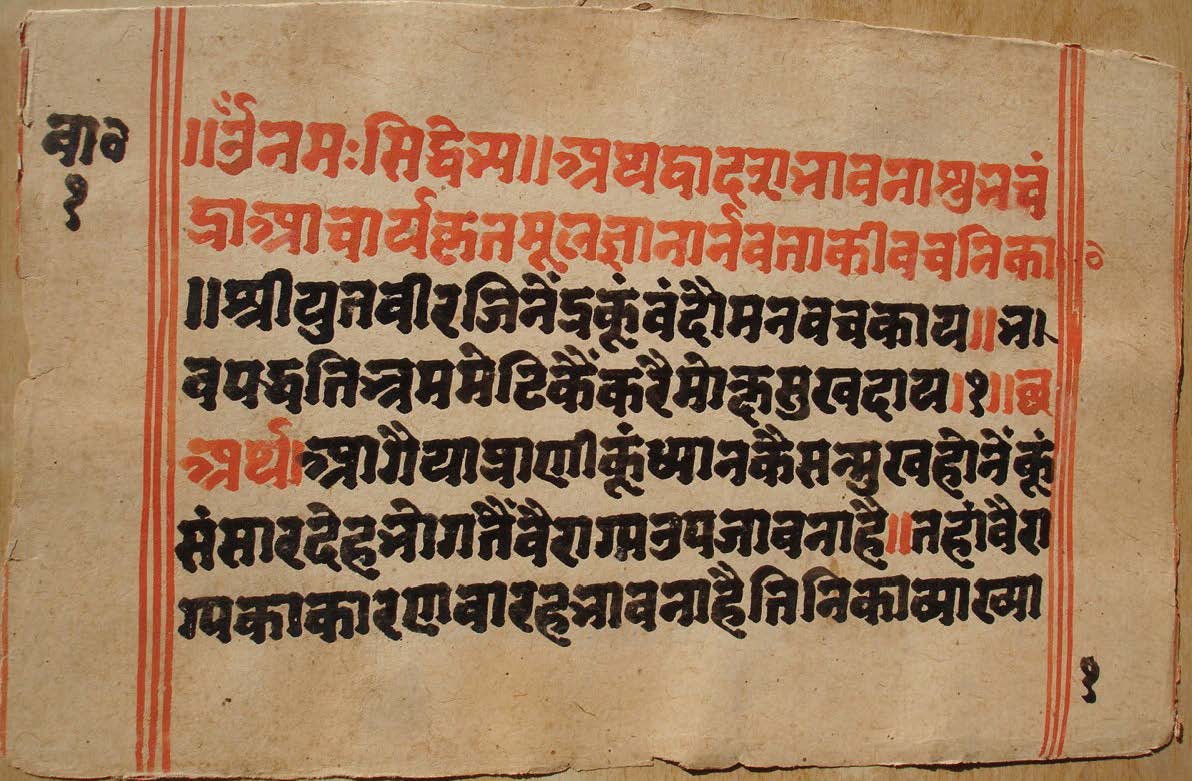 बा०
१
॥ ॐ नमः सिद्धेभ्य ॥ अथ द्वादश भावना शुभचं
द्राआचार्यकृत मूल ज्ञानार्नव ताकी वचनिका
॥ श्रीयुत वीर जिनेंद्र कूं वंदौ मन वच काय ॥ भा
वपद्धति भ्रम मेटिकैं करै मोक्ष सुखदाय ।१॥ छ
अर्थ। आगै या प्राणी कूं ध्यानकै सन्मुख होनें कूं
संसार देह भोगतैं वैराग्य उपजावना है ॥ तहां वैरा
ग्यका कारण बारह भावना है तिनिका व्याख्या
१